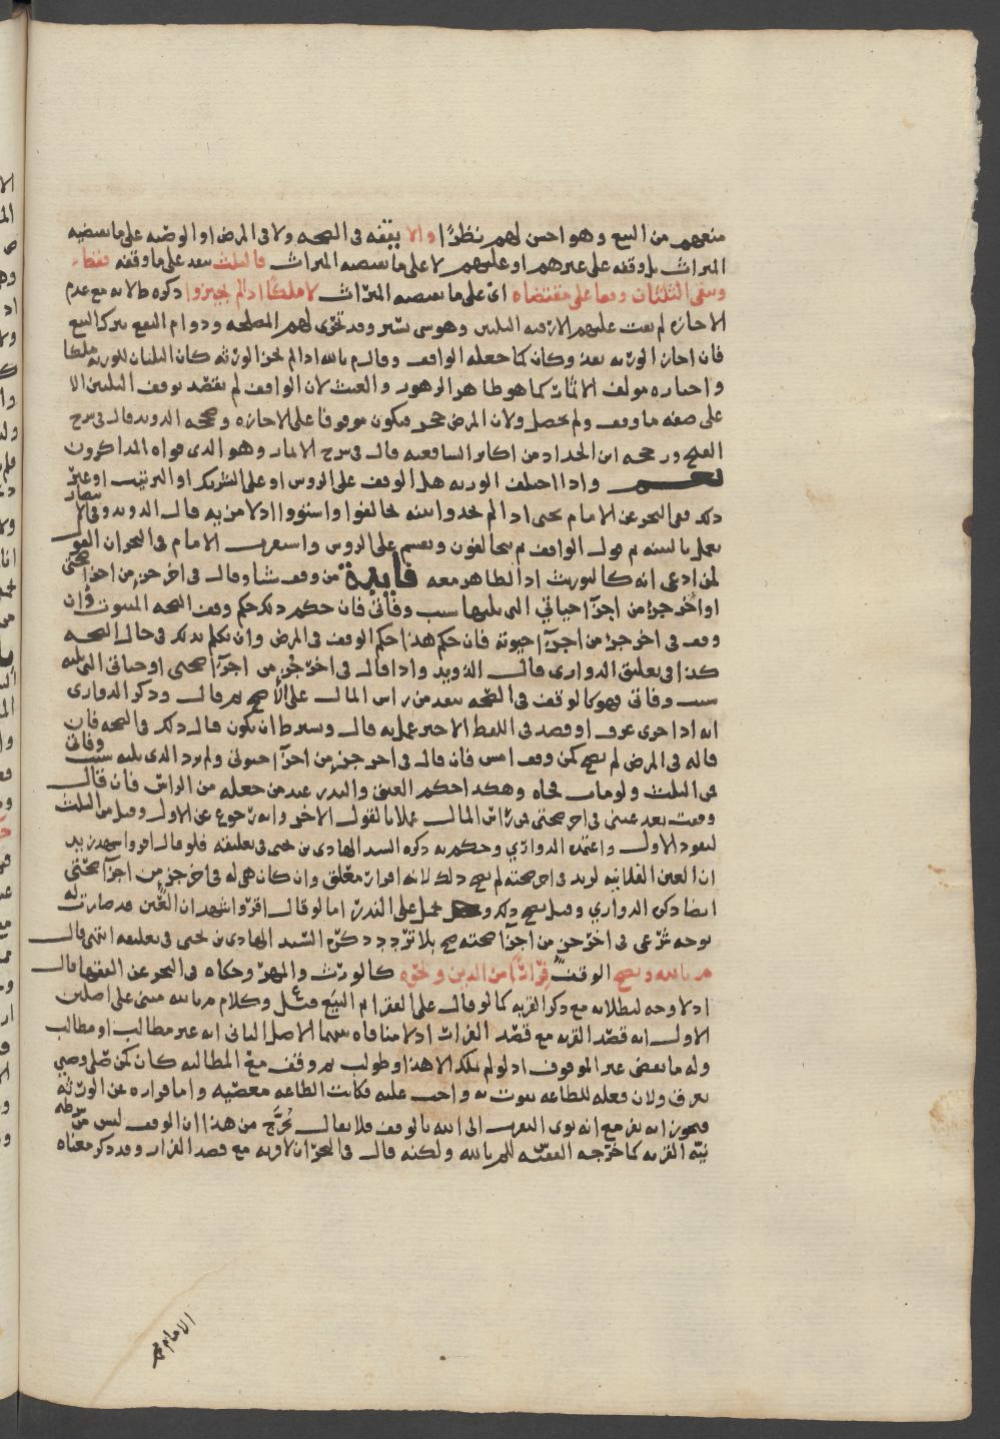 منعهم من البيع وهو احسن لهم نظرًا والا يقفه فى الصحه ولا فى المرض او الوصيه على ما يقتضيه
الميراث بل وقفه على غيرهم او عليهم لا على ما يقتضيه الميراث فالثلث ينفذ على ما وقفه فقط
وبقى الثلثان وقفا على مقتضاه اى على ما يقتضيه الميراث لا ملكًا اذا لم يجيزوا ذكره ط لانه مع عدم
الاجازه لم يفت عليهم الا رقبه الثلثين وهو شى يسير وقد تحرى لهم المصلحه ودوام النفع بترك البيع
فان اجاز الورثه نفذ وكان كما جعله الواقف وقال م بالله اذا لم يجز الورثه كان الثلثان للورثه ملكا
واختاره مولف الاثمار كما هو ظاهر الازهار والغيث لان الواقف لم يقصد بوقف الثلثين الا
على صفه ما وقف ولم يحصل ولان المرض حجر فيكون موقوفا على الاجازه وصححه الدويد قال فى شرح
الفتح ورجحه ابن الحداد من اكابر الشافعيه قال فى شرح الاثمار وهو الذى قواه المذاكرون
نعم واذا اختلف الورثه هل الوقف على الروس او على التشريك او الترتيب او غير
ذلك ففى البحر عن الامام يحيى اذا لم يجدوا بينه تحالفوا واستووا اذ لا مزيه قال الدويد وفى الاثمار
يعمل بالبينه ثم قول الواقف ثم يتحالفون ويقسم على الروس واستقرب الامام فى البحر ان القول
لمن ادعى انه كالتوريث اذ الظاهر معه فايدة من وقف شيا وقال فى اخر جزء من اجزا صحتى
او اخر جزء من اجزآ حياتي التى يليها سبب وفاتى فان حكم ذلك حكم وقف الصحه المبتوت وان
وقف فى اخر جزء من اجزآء حيوته فان حكم هذا حكم الوقف فى المرض وان تكلم بذلك فى حال الصحه
كذا فى تعليق الدوارى قال الدويد واذا قال فى اخر جزء من اجزآء صحتى او حياتى التى يليه
سبب وفاتى فهو كما لو قف فى الصحه ينفذ من راس المال على الأصح لهم قال وذكر الدوارى
انه اذا جرى عرف او قصد فى اللفظ الاخير عمل به قال ويشترط ان يكون قال ذلك فى الصحه فان
قاله فى المرض لم يصح كمن وقف امس فان قال فى اخر جزء من اجزآ حيوتى ولم يرد الذى يليه سبب وفاتى
من الثلث ولو مات فجاه وهكذا حكم العتق والنذر عند من جعله من الراس فان قال
وقفت بعد عينى فى اخر صحتى من راس المال عملا بالقول الاخر وانه رجوع عن الاول وقيل من الثلث
لتعود الاول واعتمده الدوارّي وحكم به ذكره السيد الهادى بن يحيى فى تعليقه فلو قال اقر واشهد زيد
ان العين الفلانيه لزيد فى اخر صحته لم يصح ذلك لانه اقرار معلق وان كان هى له فى اخر جزء من اجزآ صحتى
ايضا ذكره الدواري وقيل يصح ذلك ويحمل على النذر اما لو قال اقر واشهد ان العين قد صارت له
بوجه شرعى فى اخر جزء من اجزآ صحته صح بلا تردد ذكره السيد الهادى بن يحيى فى تعليقه انتهى قال
م بالله ويصح الوقف فرارًا من الدين ونحوه كالورث والمهر وحكاه فى البحر عن الفقها قال
اذ لا وجه لبطلانه مع ذكر القربه كما لو قال على الفقرا ثم البيع مثل وكلام م بالله مبنى على اصلين
الاول انه قصد القربه مع قصد الفرار اذ لا منافاه بينهما الاصل الثانى انه غير مطالب او مطالب
وله ما يقضى غير الموقوف اذ لو لم يملك الا هذا وطولب ثم وقف مع المطالبه كان كمن صلى وصبي
يغرق ولان فعله للطاعه يفوت به واجب عليه فكانت الطاعه معصيه واما فراره عن الورثه
فيجوز انه يفر مع انه نوى التقرب الى الله بالوقف فلا يقال يُخَرَّج من هذا ان الوقف ليس من شرطه
نيّه القربه كما خرّجه الفقيه للم بالله ولكنه قال فى البحر ان لا قربه مع قصد الفرار وقد ذكر معناه
الامام